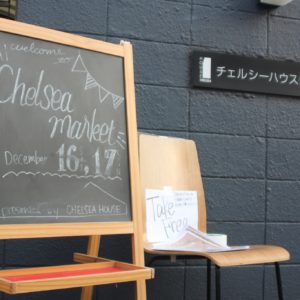 welcome
Chelsea
market
December 16, 17
presented by CHELSEA HOUSE
チェルシーハウス
Take
Free